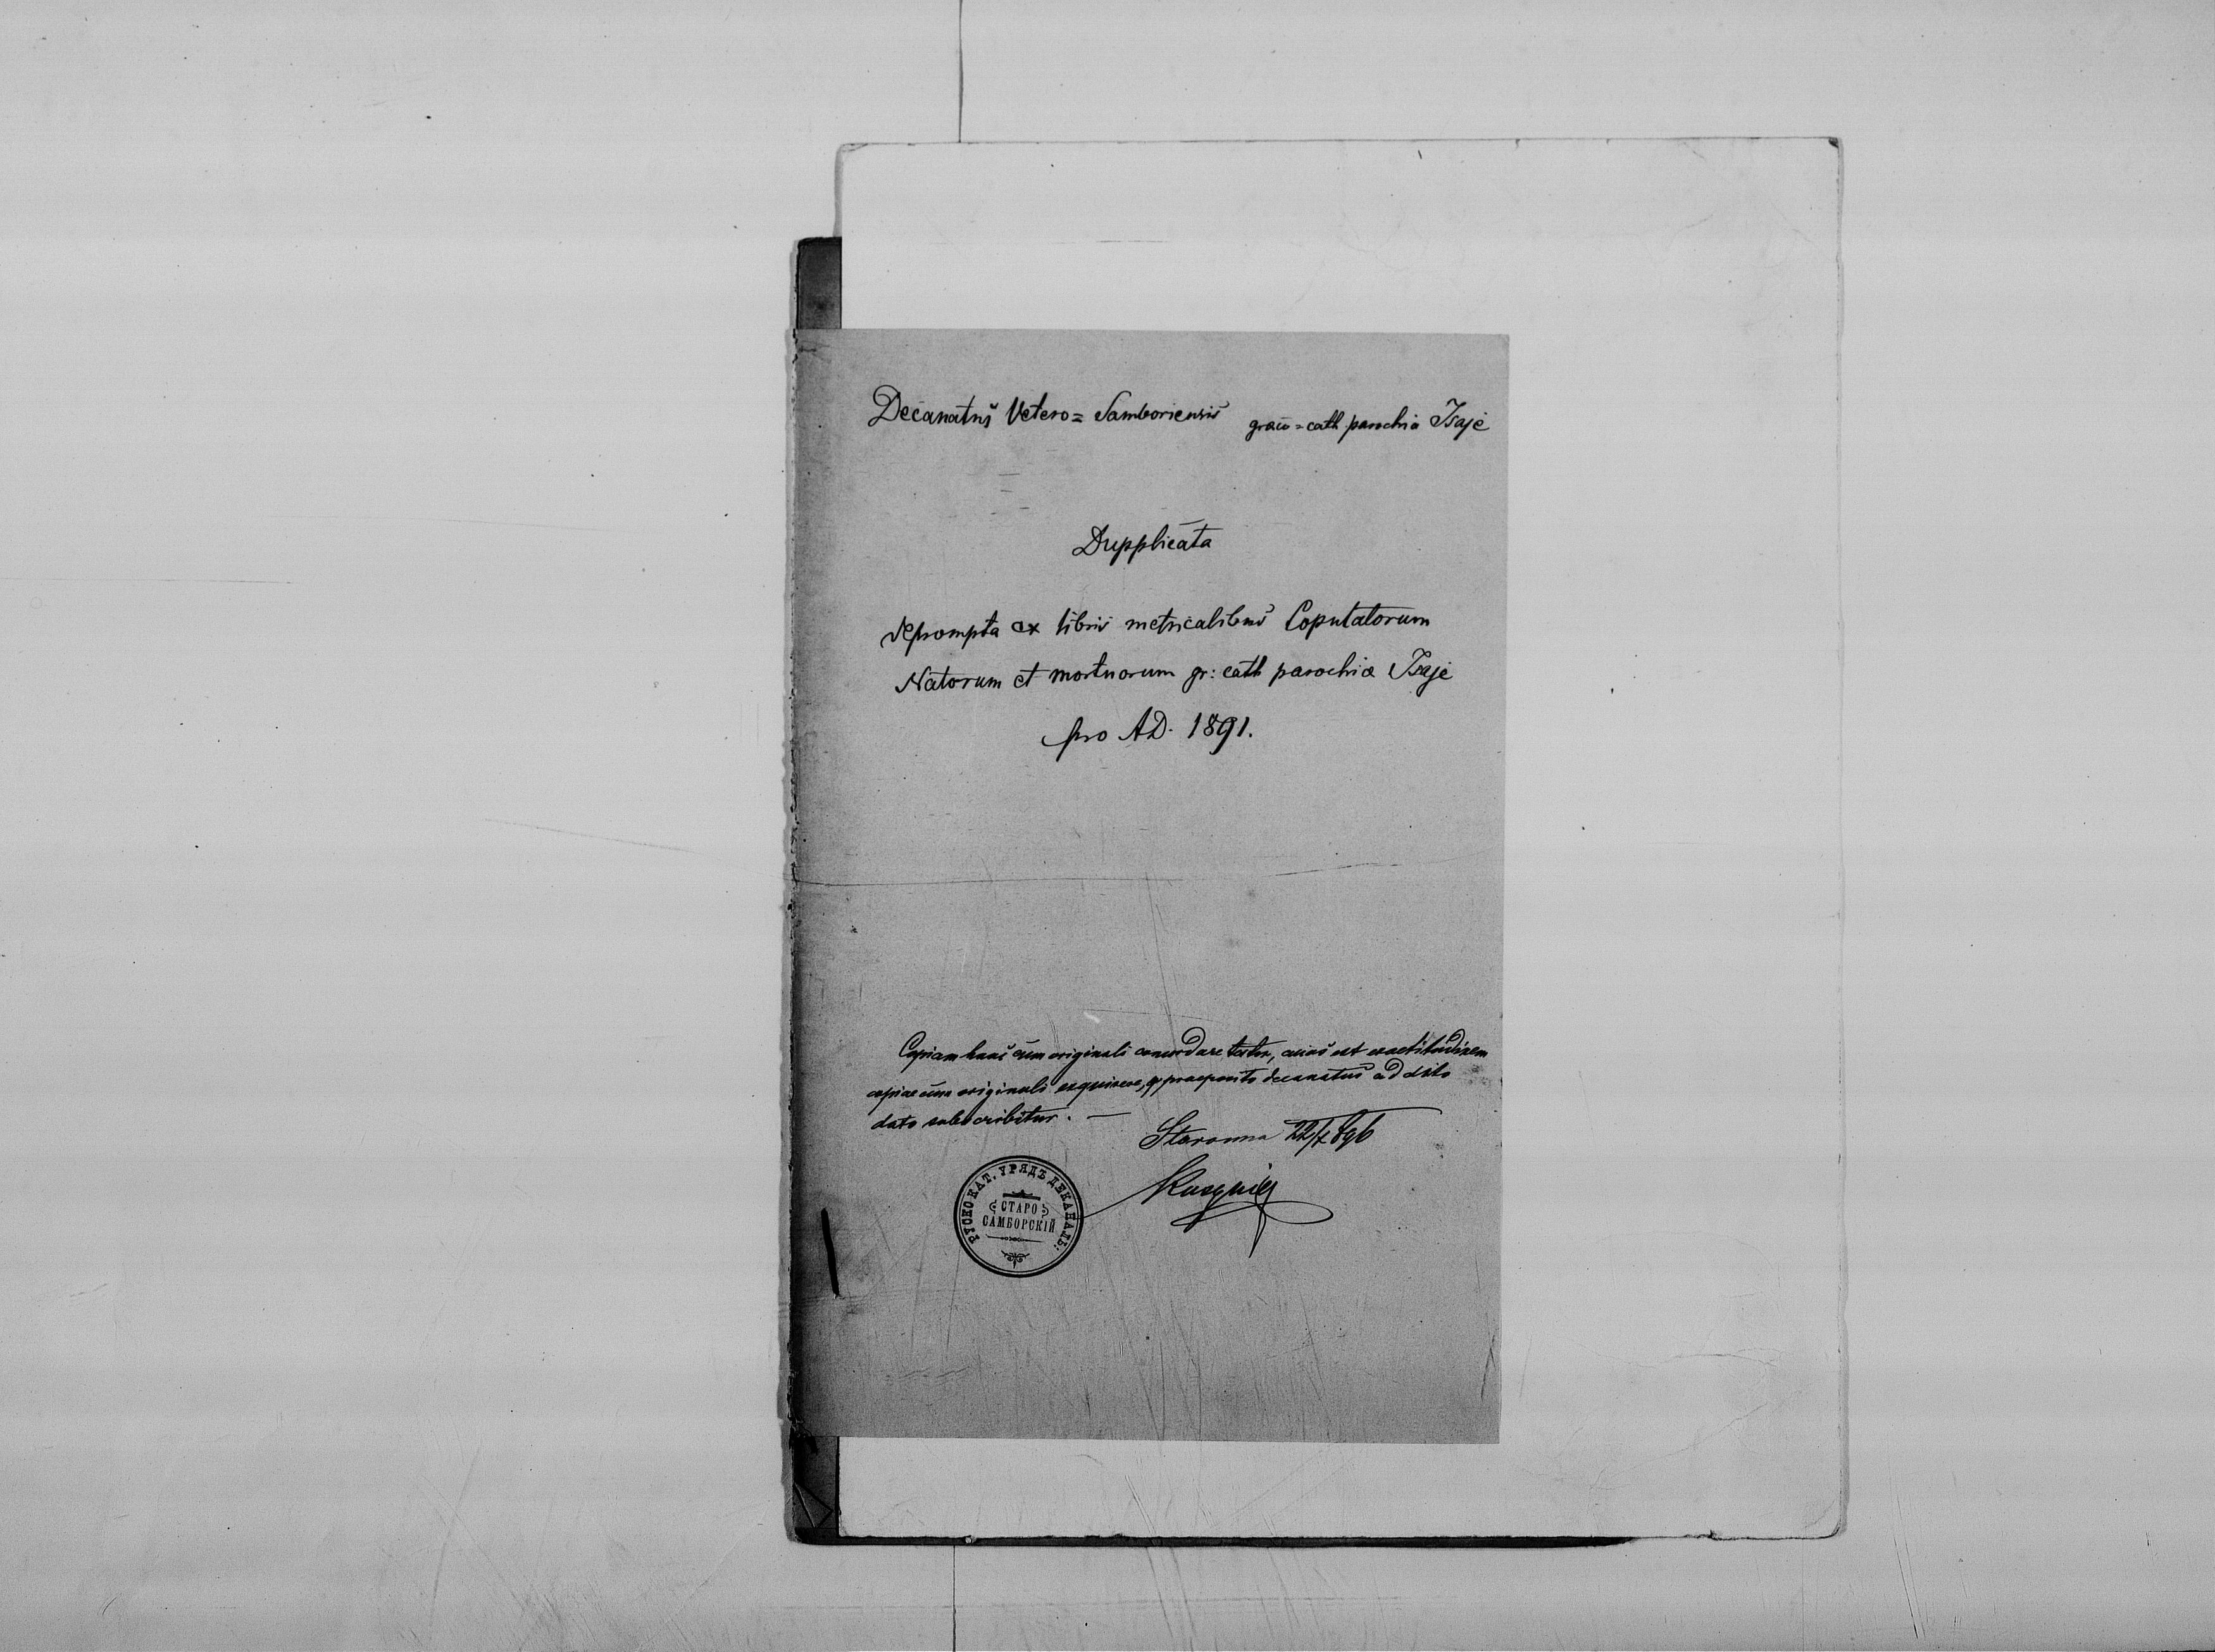 Decanatus Vetero = Samboriensis graeco = cath parochia Isaje
Dupplicata
deprompta ex libris metricalibus Copulatorum
Natorum et mortuorum gr: cath parochiae Isaje
pro A.D. 1891.
Copiam hanc cum originali concordare testor, exactitudinem
copiae cum originali praeposito decanatus addito
dato subscribitur. —
22/ 896
РУСКО КАТ. УРЯДЪ ДЕКАНАЛЬ:
СТАРО
САМБОРСКІЙ